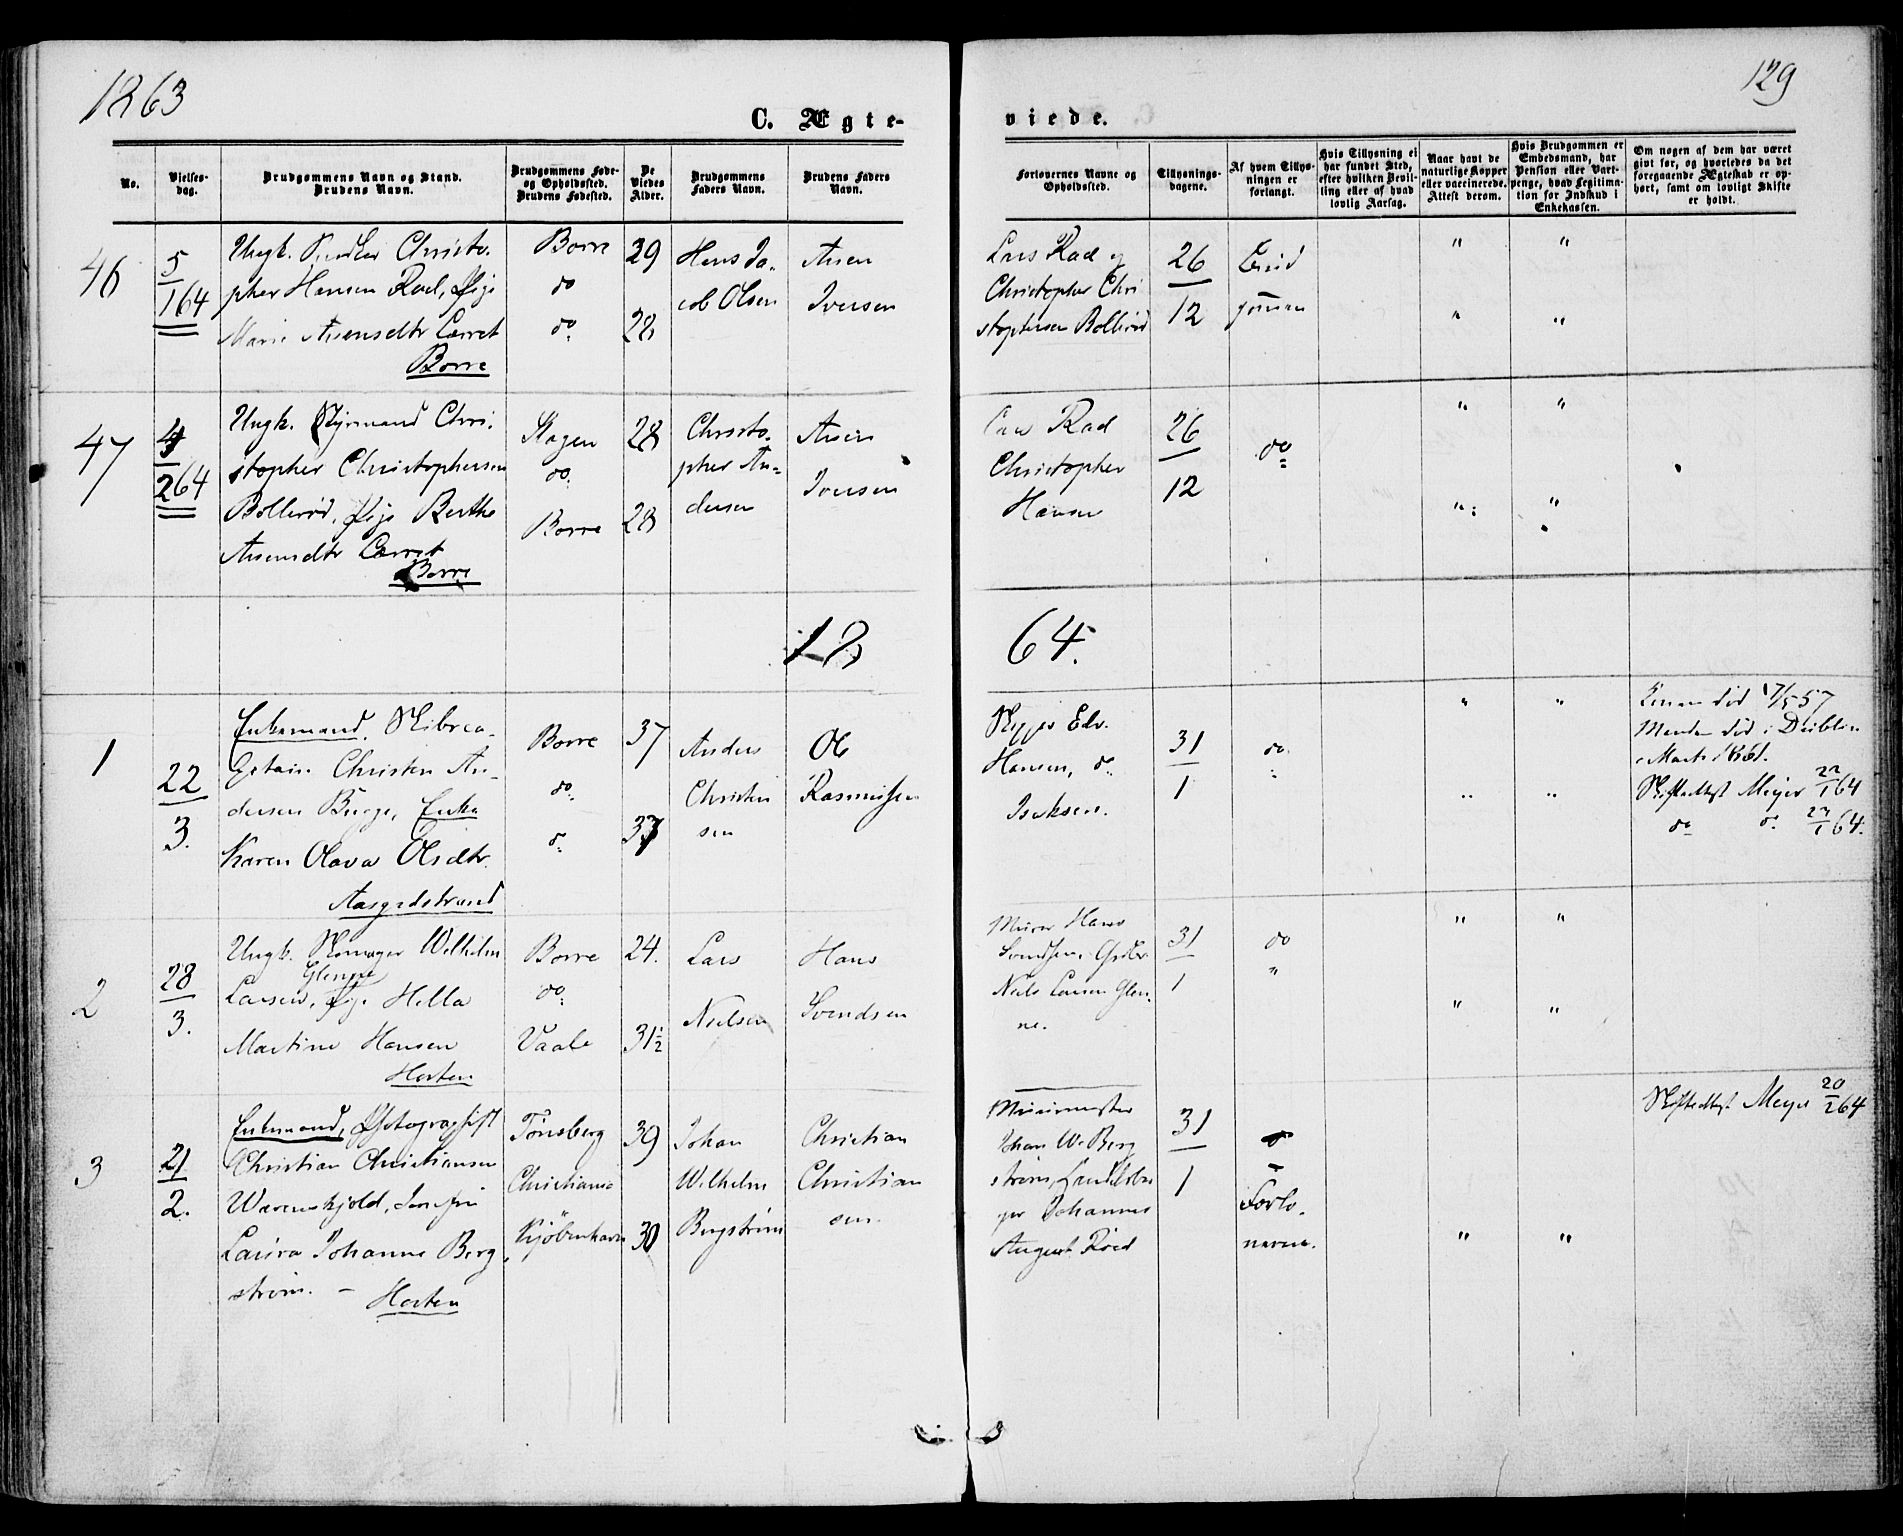 1863
129
C. Ægte-
viede.
No.
Vielses-
dag.
Brudgommens Navn og Stand.
Brudens Navn.
Brudgommens Føde-
og Opholdssted.
Brudens Fødested.
De
Viedes
Alder.
Brudgommens
Faders Navn.
Brudens Faders
Navn.
Forlovernes Navne og
Opholdssted.
Tillysnings-
dagene.
Af hvem Tillys-
ningen er
forlangt.
Hvis Tillysning ei
har fundet Sted,
efter hvilken Bevil-
ling eller af hvad
lovlig Aarsag.
Naar havt de
naturlige Kopper
eller vaccinerede.
Attest derom.
Hvis Brudgommen er
Embedsmand, har
Pension eller Vart-
penge, hvad Legitima-
tion for Indskud i
Enkekassen.
Om nogen af dem har været
gift før, og hvorledes da det
foregaaende Ægteskab er op-
hørt, samt om lovligt Skifte
er holdt.
46
5
164
Ungk. Christo-
pher Hansen Rad, Pige
Marie Ansensdtr Lerret
Borre
Borre
do
do
29
28
Hans Ja-
cob Olsen
Ansen
Iversen
Lars Rad og
Christopher Chri
stophersen Bollerød
26
12
" "
" "
47
4
264
Ungk. Styrmand Chri-
stopher Christophersen
Bollerød, Pige Berthe
Ansensdtr Lerret
Borre
Slagen
do
Borre
28
28
Christo-
pher An-
dersen
Ansen
Iversen
Lars Rad
Christopher
Hansen
26
12
do
" "
" "
18 64.
1
22
3.
Enkemand, Skibsca-
ptain Christen An-
dersen Enke
Karen Olava Olsdtr.
Aasgaardstrand
Borre
do
do
37
37
Anders
Christen
sen
Ole
Rasmussen
Edv.
Hansen, do
Isaksen.
31
1
do
" "
" "
Konen død 17/5 57
Manden død i Dublin
Marts 1861.
Skifteattest Meyer 22/1 64
do do 27/1 64.
2
28
3.
Ungk. Skomager Wilhelm
Glenne
Larsen, Pige Hella
Martine Hansen
Horten
Borre
do
Vaale
24.
31½
Lars
Nielsen
Hans
Svendsen
Murer Hans
Svendsen,
Niels Larsen Glen-
ne.
31
1
do
"
" "
" "
3
21
2.
Enkemand, Photographist
Christian Christiansen
Warenskjold, Jomfru
Laura Johanne Berg
strøm. — Horten
Tønsberg
Christiania
Kjöbenhavn
39
30
Johan
Wilhelm
Bergstrøm
Christian
Christian
sen.
Murermester
Johan W. Berg
strøm,
Johannes
August Röed
31
1
do
Forlo-
verne.
" "
Skifteattest Meyer 20/2 64